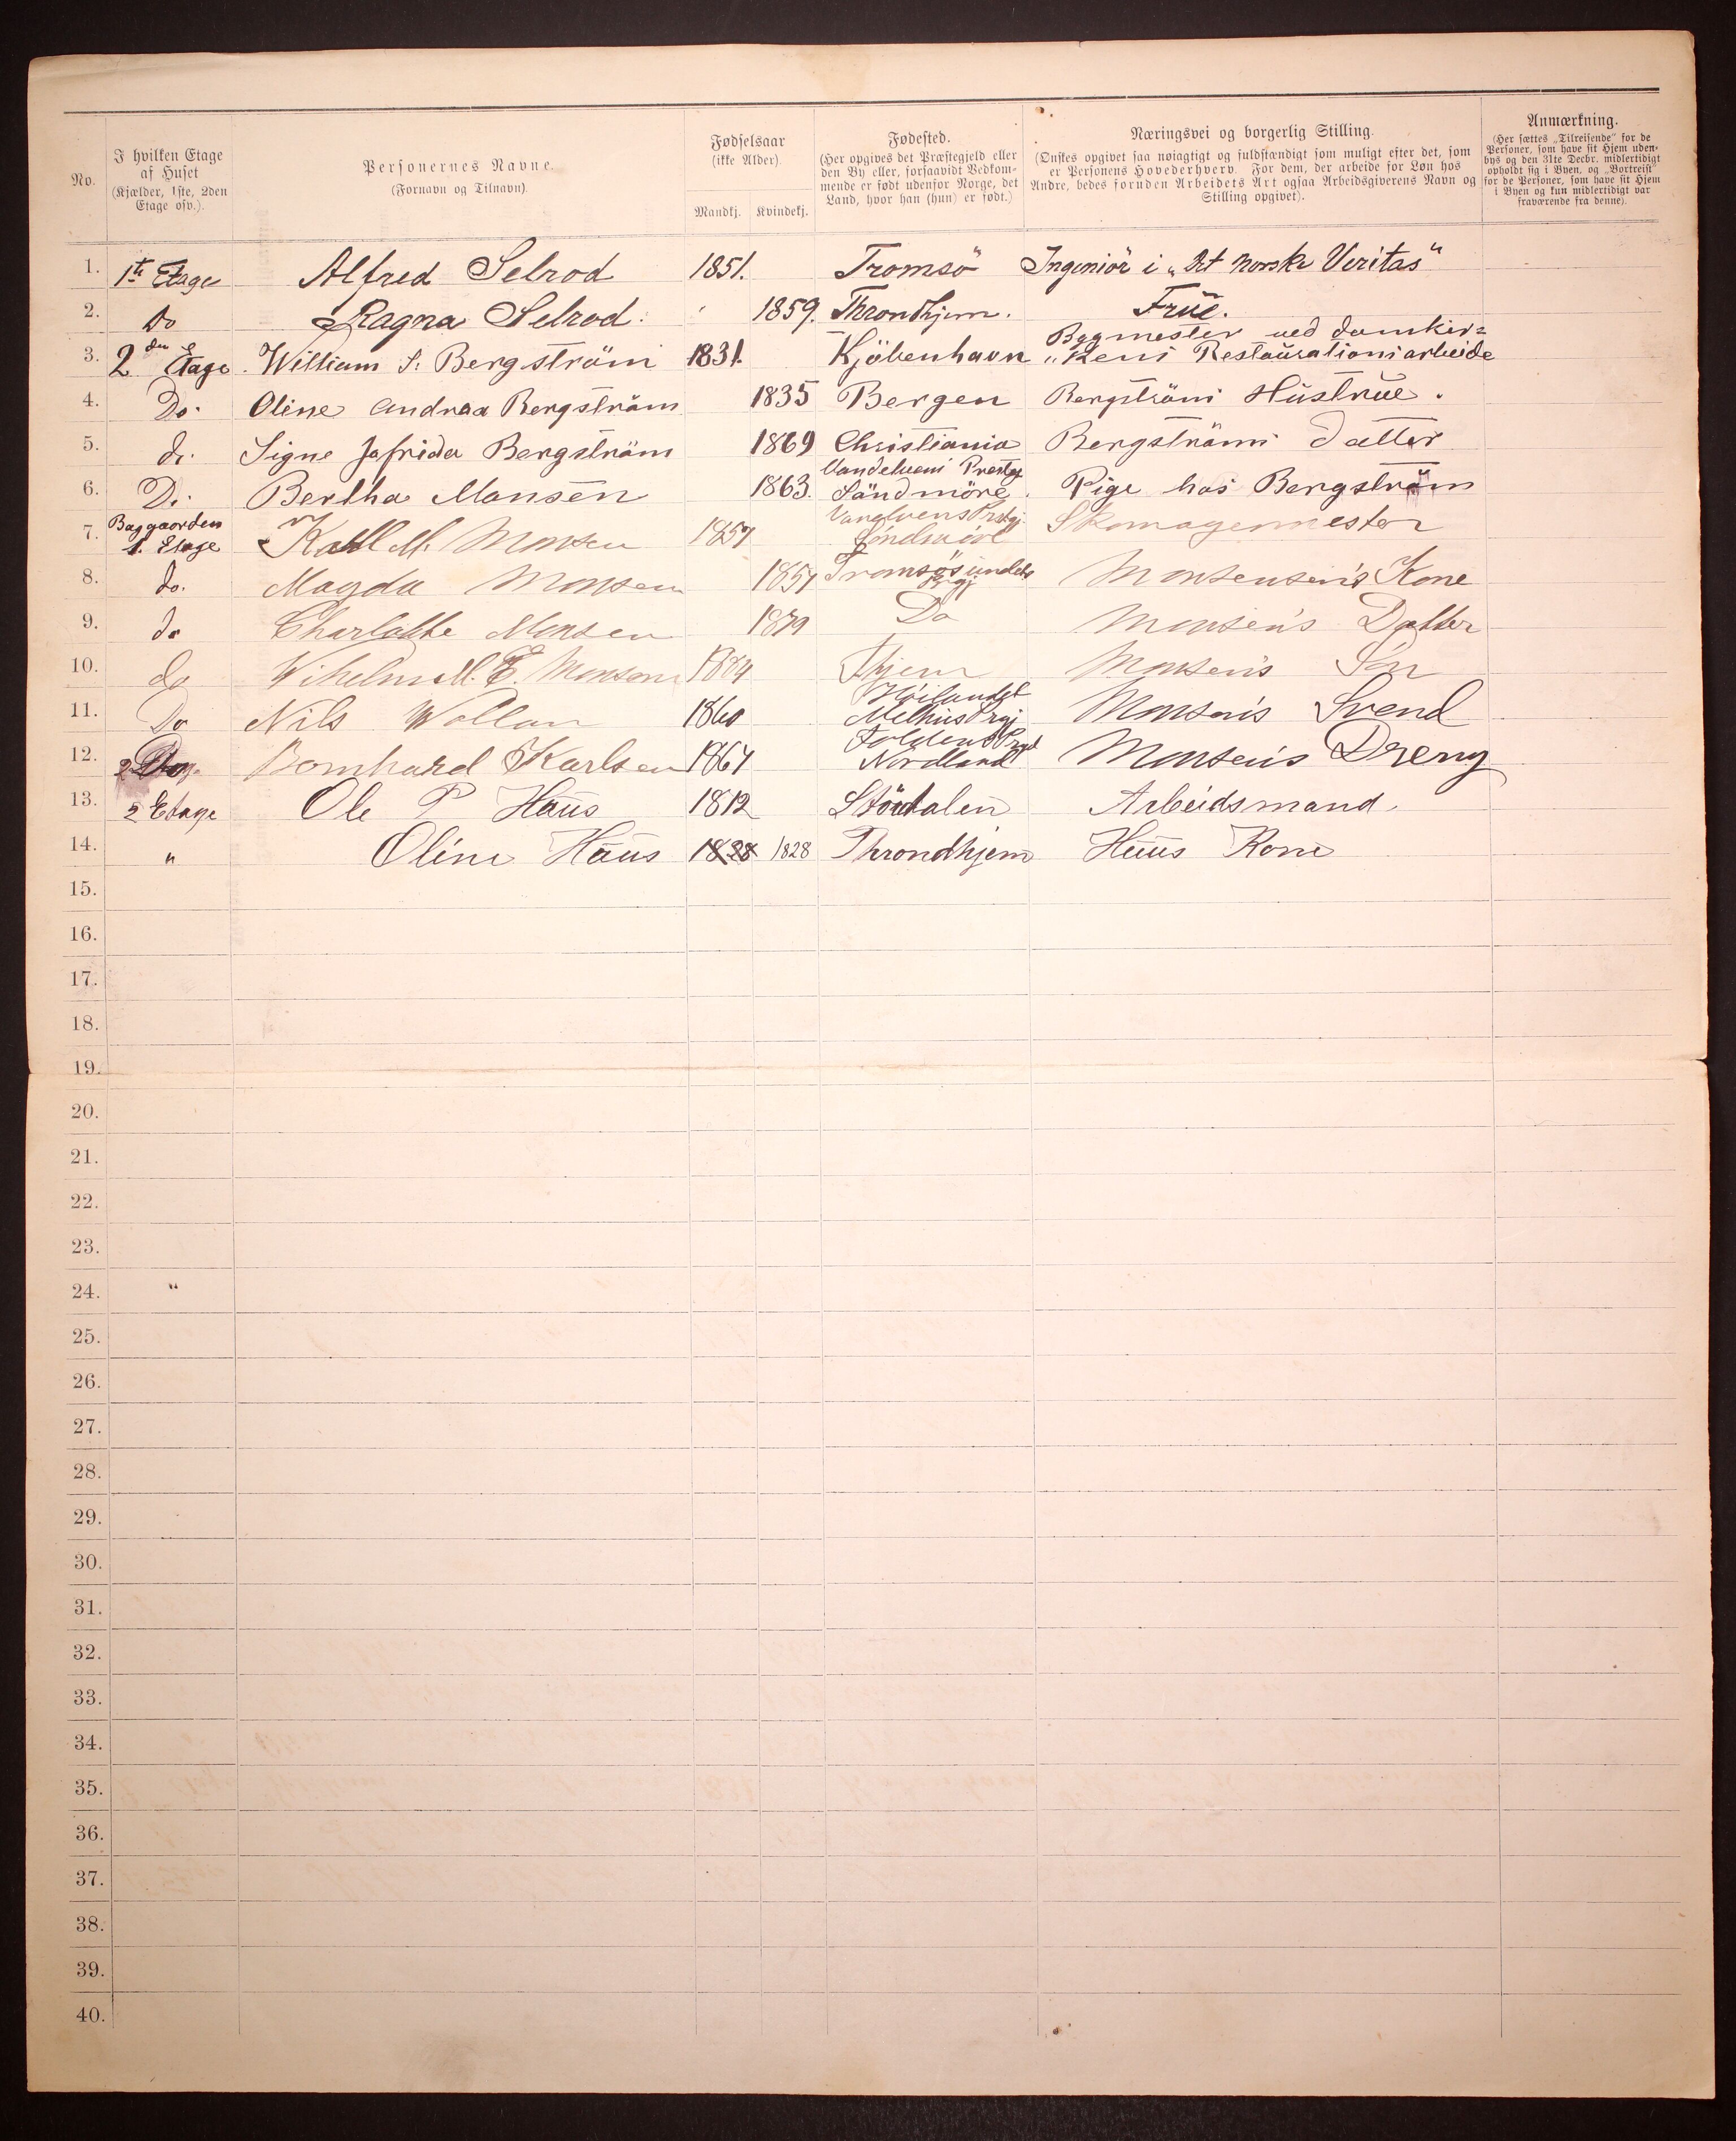 No.
I hvilken Etage
af Huset
(Kjælder, 1ste, 2den
Etage osv.).
Personernes Navne.
(Fornavn og Tilnavn).
Fødselsaar
(ikke Alder).
Mandkj. Kvindekj.
Fødested.
(Her opgives det Præstegjeld eller
den By eller, forsaavidt Vedkom-
mende er født udenfor Norge, det
Land, hvor han (hun) er født.)
Næringsvei og borgerlig Stilling.
(Ønskes opgivet saa nøiagtigt og fuldstændigt som muligt efter det, som
er Personens Hovederhverv. For dem, der arbeide for Løn hos
Andre, bedes foruden Arbeidets Art ogsaa Arbeidsgiverens Navn og
Stilling opgivet).
Anmærkning.
(Her sættes „Tilreisende" for de
Personer, som have sit Hjem uden-
bys og den 31te Decbr. midlertidigt
opholdt sig i Byen, og „Bortreist"
for de Personer, som have sit Hjem
i Byen og kun midlertidigt var
fraværende fra denne).
1. 1te Etage Alfred Selrod 1851. Tromsö Ingeniör i „Det norske Veritas"
2. Do Ragna Selrod. 1859. Throndhjem. Frue.
3. 2den Etage. William S: Bergström 1831. Kjöbenhavn Bygmester ved domkir=
„kens Restaurationsarbeide
4. Do. Oline Andrea Bergström 1835 Bergen Bergströms Hustrue.
5. do. Signe Jafrida Bergström 1869 Christiania Bergströms Datter
6. Do. Bertha Monsen 1863. Vandelvens Prestg
Söndmöre. Pige hos Bergström
7. Baggaarden
1. Etage Karl M. Monsen 1857 Vanelvens Prstgj.
Söndmöre Skomagermester
8. do. Magda Monsen 1857 Tromsösundets
Prgj Monsensen's Kone
9. do Charlotte Monsen 1879 Do Monsen's Datter
10. do Wihelm M. E. Monsen 1884 Thjem Monsen's Sön
11. Do Nils Wollan 1860 Höilandet
Melhus Prgj Monsen's Svend
12. Do Bernhard Karlsen 1867 Foldens Prgd
Nordland Monsen's Dreng
13. 2 Etage Ole P Haus 1812 Stördalen Arbeidsmand.
14. " Oline Haus 1828 1828 Throndhjem Huus Kone
15.
16.
17.
18.
19.
20.
21.
22.
23.
24. "
25.
26.
27.
28.
29.
30.
31.
32.
33.
34.
35.
36.
37.
38.
39.
40.